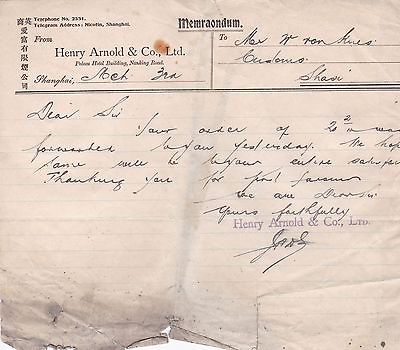 英商愛寫有限煙公司
Telephone No. 2351.
Telegram Address: Nicotin, Shanghai.
Memraondum.
From
Henry Arnold & Co., Ltd.
Palace Hotel Building, Nanking Road.
Shanghai, Mch 3rd
To
Mr W van
Customs
Shasi
Dear Sir
Your order of 2nd was
forwarded to you yesterday. We hope
same will be to your entire
Thanking you for past favours
We are Dear Sir
Yours faithfully
Henry Arnold & Co., Ltd.